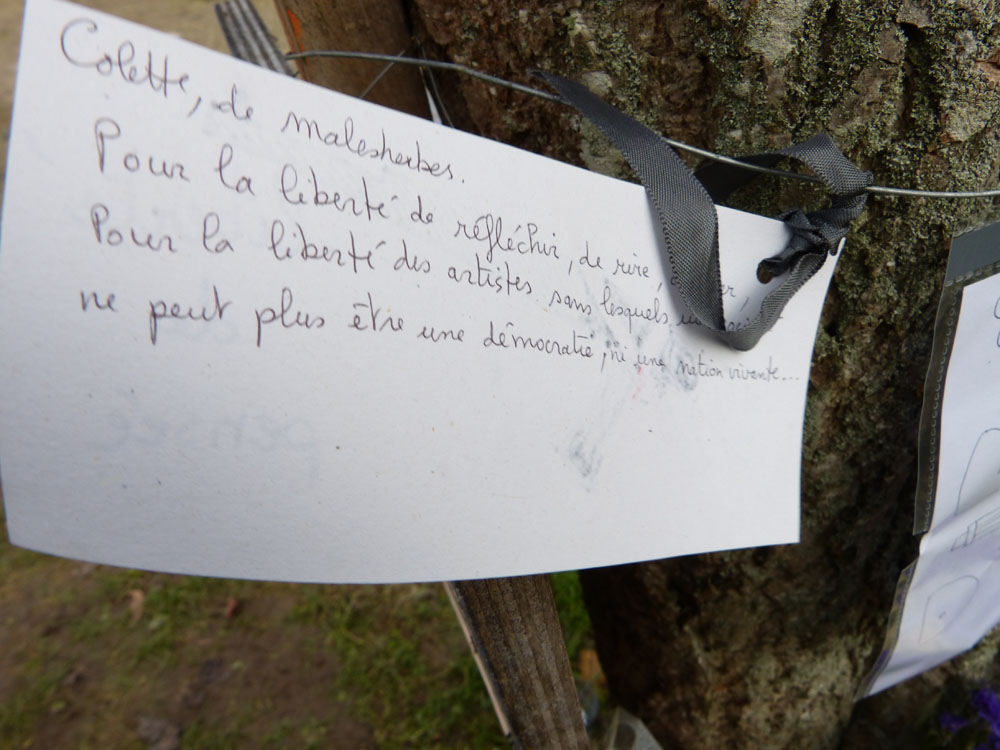 Colette, de malesherbes.
Pour la liberté de réfléchir, de rire,
Pour la liberté des artistes sans lesquels
ne peut plus être une démocratie, ni une nation vivante...
pensée